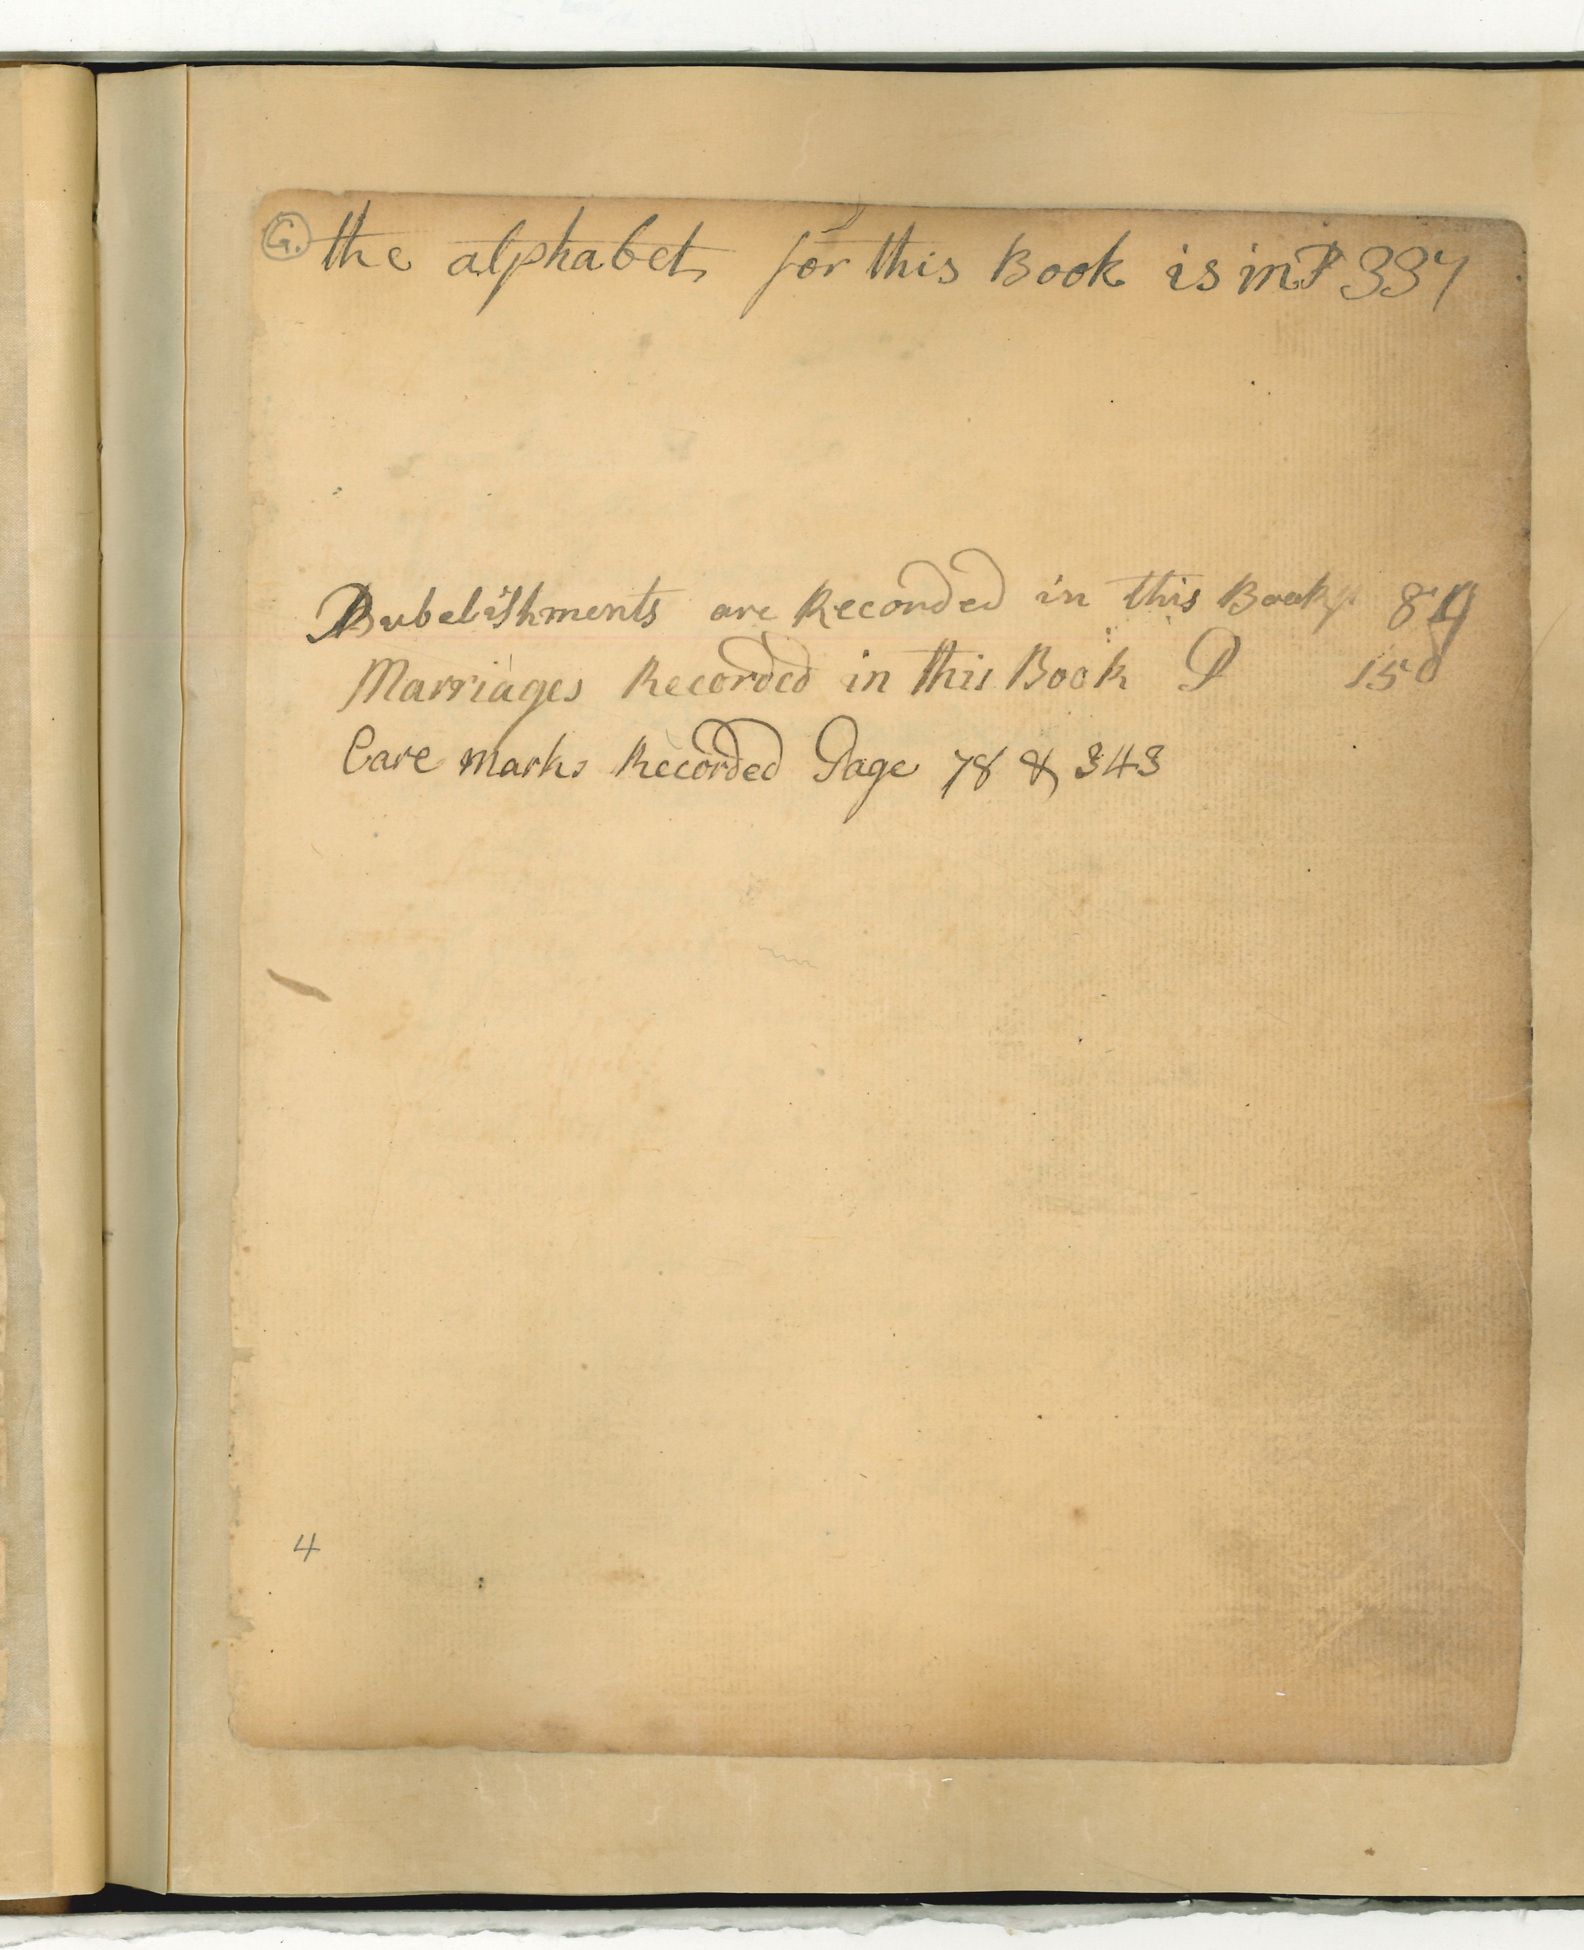 G. the alphabet for this Book is in P 337
Pubelishments are Recorded in this Book p 84
Marriages Recorded in this Book P 150
Eare marks Recorded Page 78 & 343
4